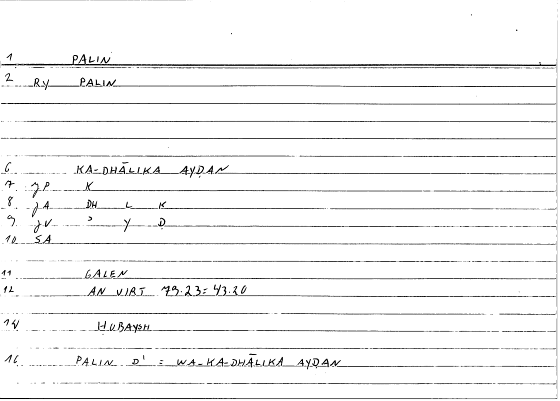 1 PALIN
2 RY PALIN
6 KA-DHĀLIKA AYḌAN
7 JP K
8 JA DH L K
9 JV ʾ Y Ḍ
10 SA
11 GALEN
12 AN VIRT 79.23=43.20
14 ḤUBAYSH
16 PALIN D' = WA-KA-DHĀLIKA AYḌAN